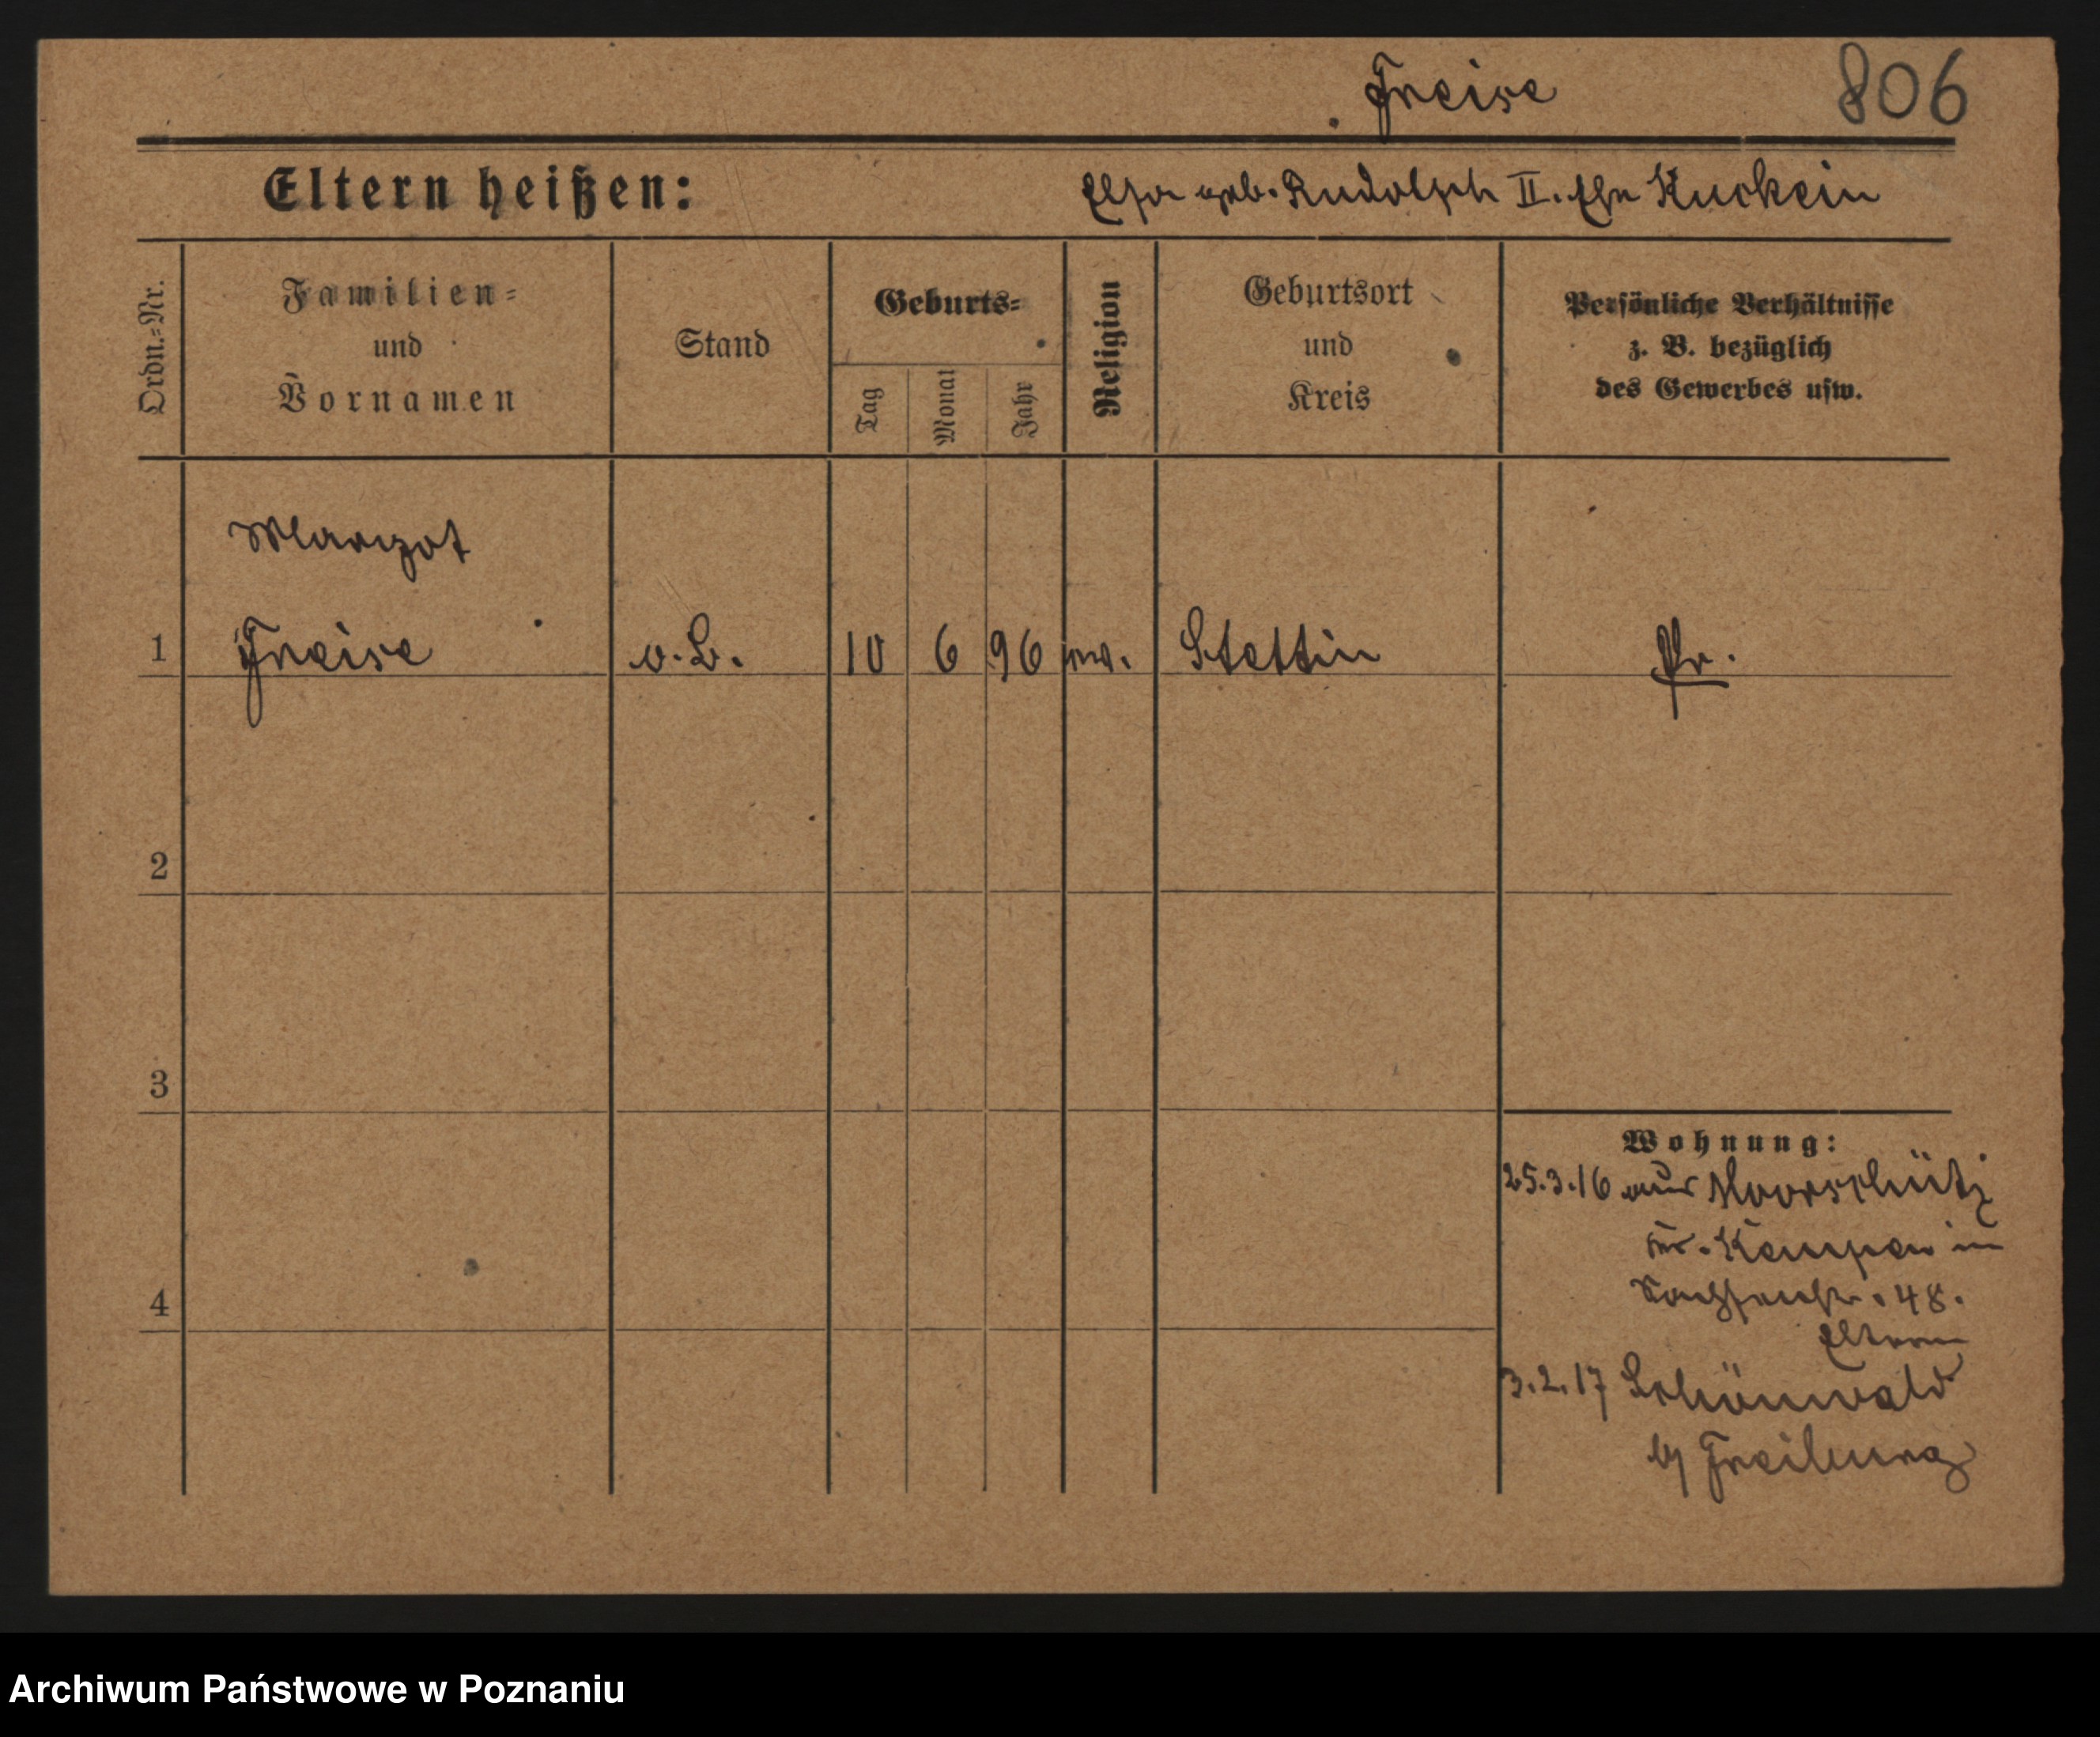 Freise 806
Eltern heißen: Elsa geb. Rudolph II. Ehe Kuckein
Ordn.=Nr. Familien= und Vornamen Stand Geburts= Tag Monat Jahr Religion Geburtsort und Kreis Persönliche Verhältnisse z. B. bezüglich des Gewerbes usw.
Margot
1 Freise o. B. 10 6 96 ev. Stettin Pr.
2
3
Wohnung:
25.3.16 aus Moorschütz
Kr. Kempen in
48.
4
Eltern
3.2.17 Schönwald
b/ Freiburg
Archiwum Państwowe w Poznaniu